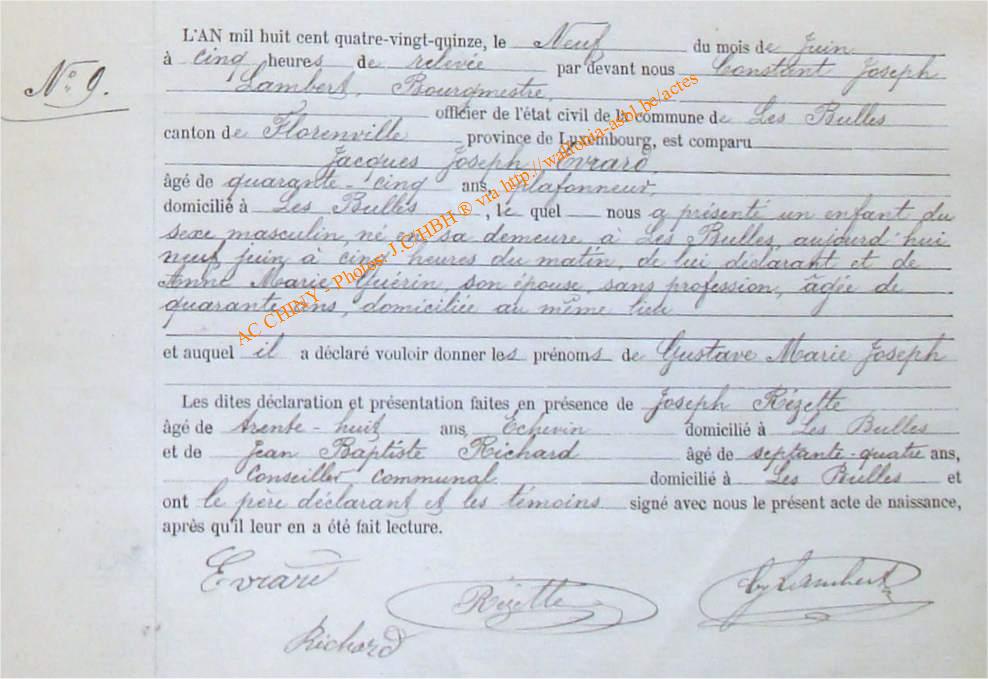 L'AN mil huit cent quatre-vingt-quinze, le Neuf du mois de Juin
N° 9.
à cinq heures de relevée par devant nous Constant Joseph
Lambert, Bourgmestre,
officier de l'état civil de la commune de Les Bulles
canton de Florenville province de Luxembourg, est comparu
Jacques Joseph Evrard
âgé de quarante-cinq ans, plafonneur,
domicilié à Les Bulles, le quel nous a présenté un enfant du
sexe masculin, né en sa demeure, à Les Bulles, aujourd'hui
neuf juin à cinq heures du matin, de lui déclarant et de
Anne Marie Guérin, son épouse, sans profession, âgée de
quarante ans, domiciliée au même lieu
et auquel il a déclaré vouloir donner les prénoms de Gustave Marie Joseph
Les dites déclaration et présentation faites en présence de Joseph Rézette
âgé de trente-huit ans Echevin domicilié à Les Bulles
et de Jean Baptiste Richard âgé de septante-quatre ans,
Conseiller communal domicilié à Les Bulles et
ont le père déclarant et les témoins signé avec nous le présent acte de naissance,
après qu'il leur en a été fait lecture.
Evrard
Rézette
CjLambert
Richard
AC CHINY - Photos: J.C HBH ® via http://wallonia-asbl.be/actes